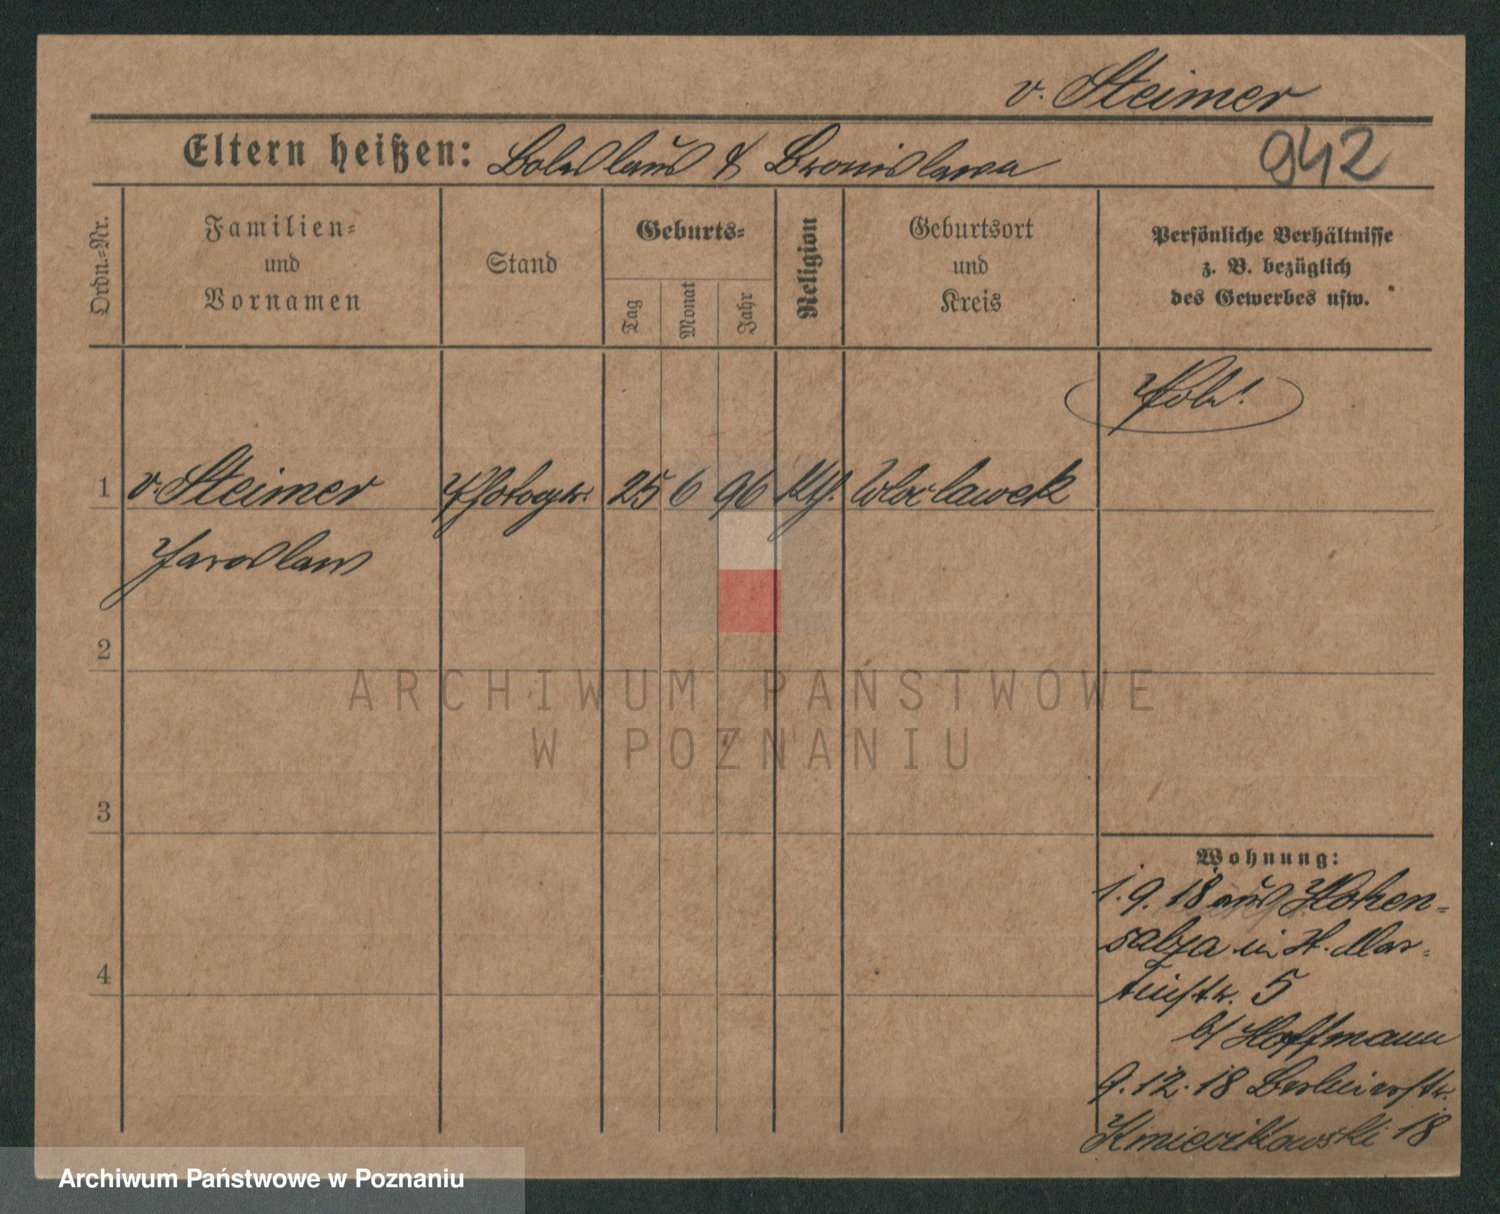 v. Steimer
Eltern heißen: Boleslaus & Bronislawa
942
Ordn.-Nr.
Familien-
und
Vornamen
Stand
Geburts-
Tag
Monat
Jahr
Religion
Geburtsort
und
Kreis
Persönliche Verhältnisse
z. B. bezüglich
des Gewerbes usw.
1 v. Steimer Photogr. 25 6 96 Wloclawek
Jaroslaw
2
3
4
Wohnung:
1.9.18 aus Hohen-
salza in St. Mar-
tinstr. 5
b/ Hoffmann
9.12.18 Berlinerstr.
18
ARCHIWUM PAŃSTWOWE
W POZNANIU
Archiwum Państwowe w Poznaniu